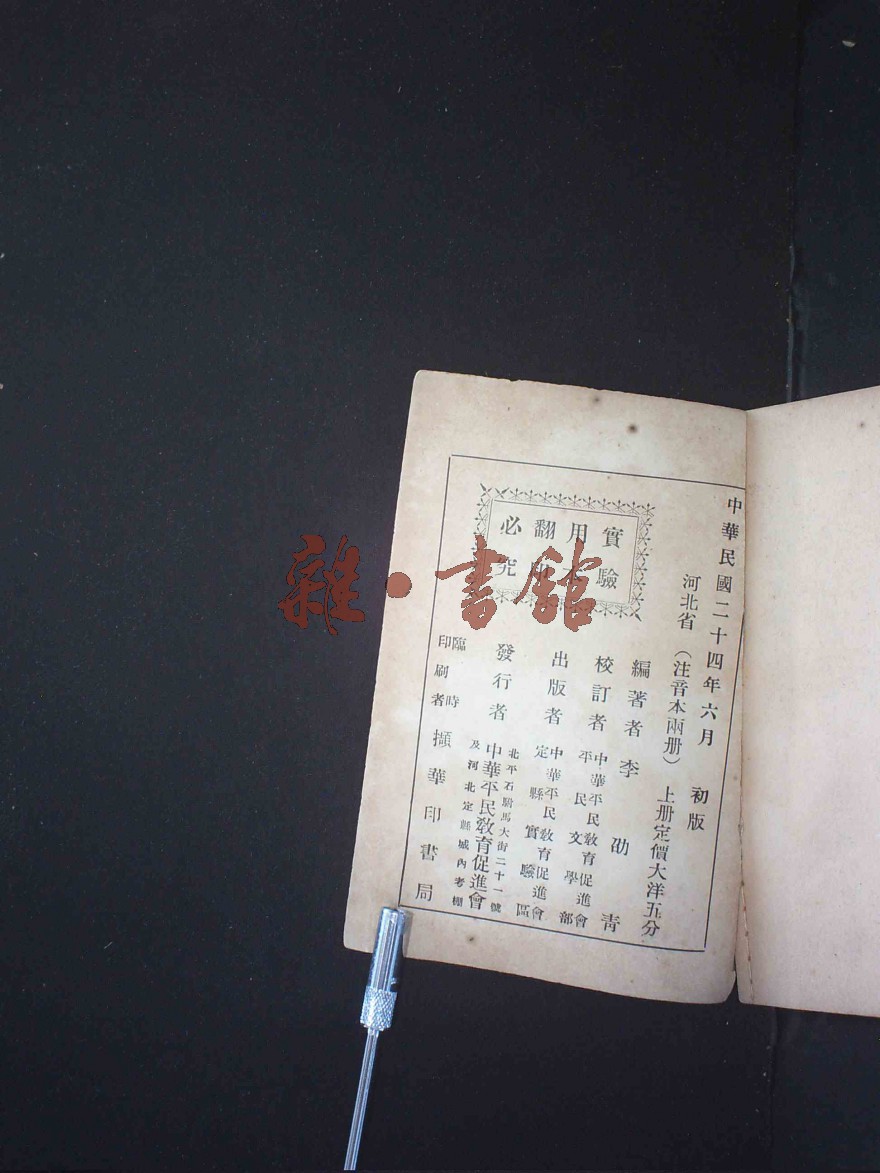 中華民國二十四年六月 初版
河北省（注音本兩册） 上册定價大洋五分
實驗
用本
翻印
必究
編著者 李劭青
校訂者 中華平民教育促進會
平民文學部
出版者 中華平民教育促進會
定縣實驗區
發行者 北平石駙馬大街二十一號
中華平民教育促進會
及河北定縣城內考棚
臨時
印刷者 擷華印書局
雜·書館